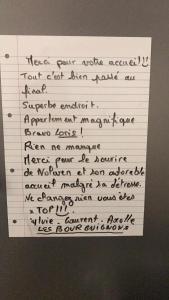 Merci pour votre accueil!!
Tout c'est bien passé au
final.
Superbe endroit.
Appartement magnifique
Bravo Loris!
Rien ne manque
Merci pour le sourire
de Nolwen et son adorable
accueil malgré sa détresse.
Ne changez rien vous êtes
* TOP!!!
Sylvie - Laurent - Axelle
LES BOURGUIGNONS